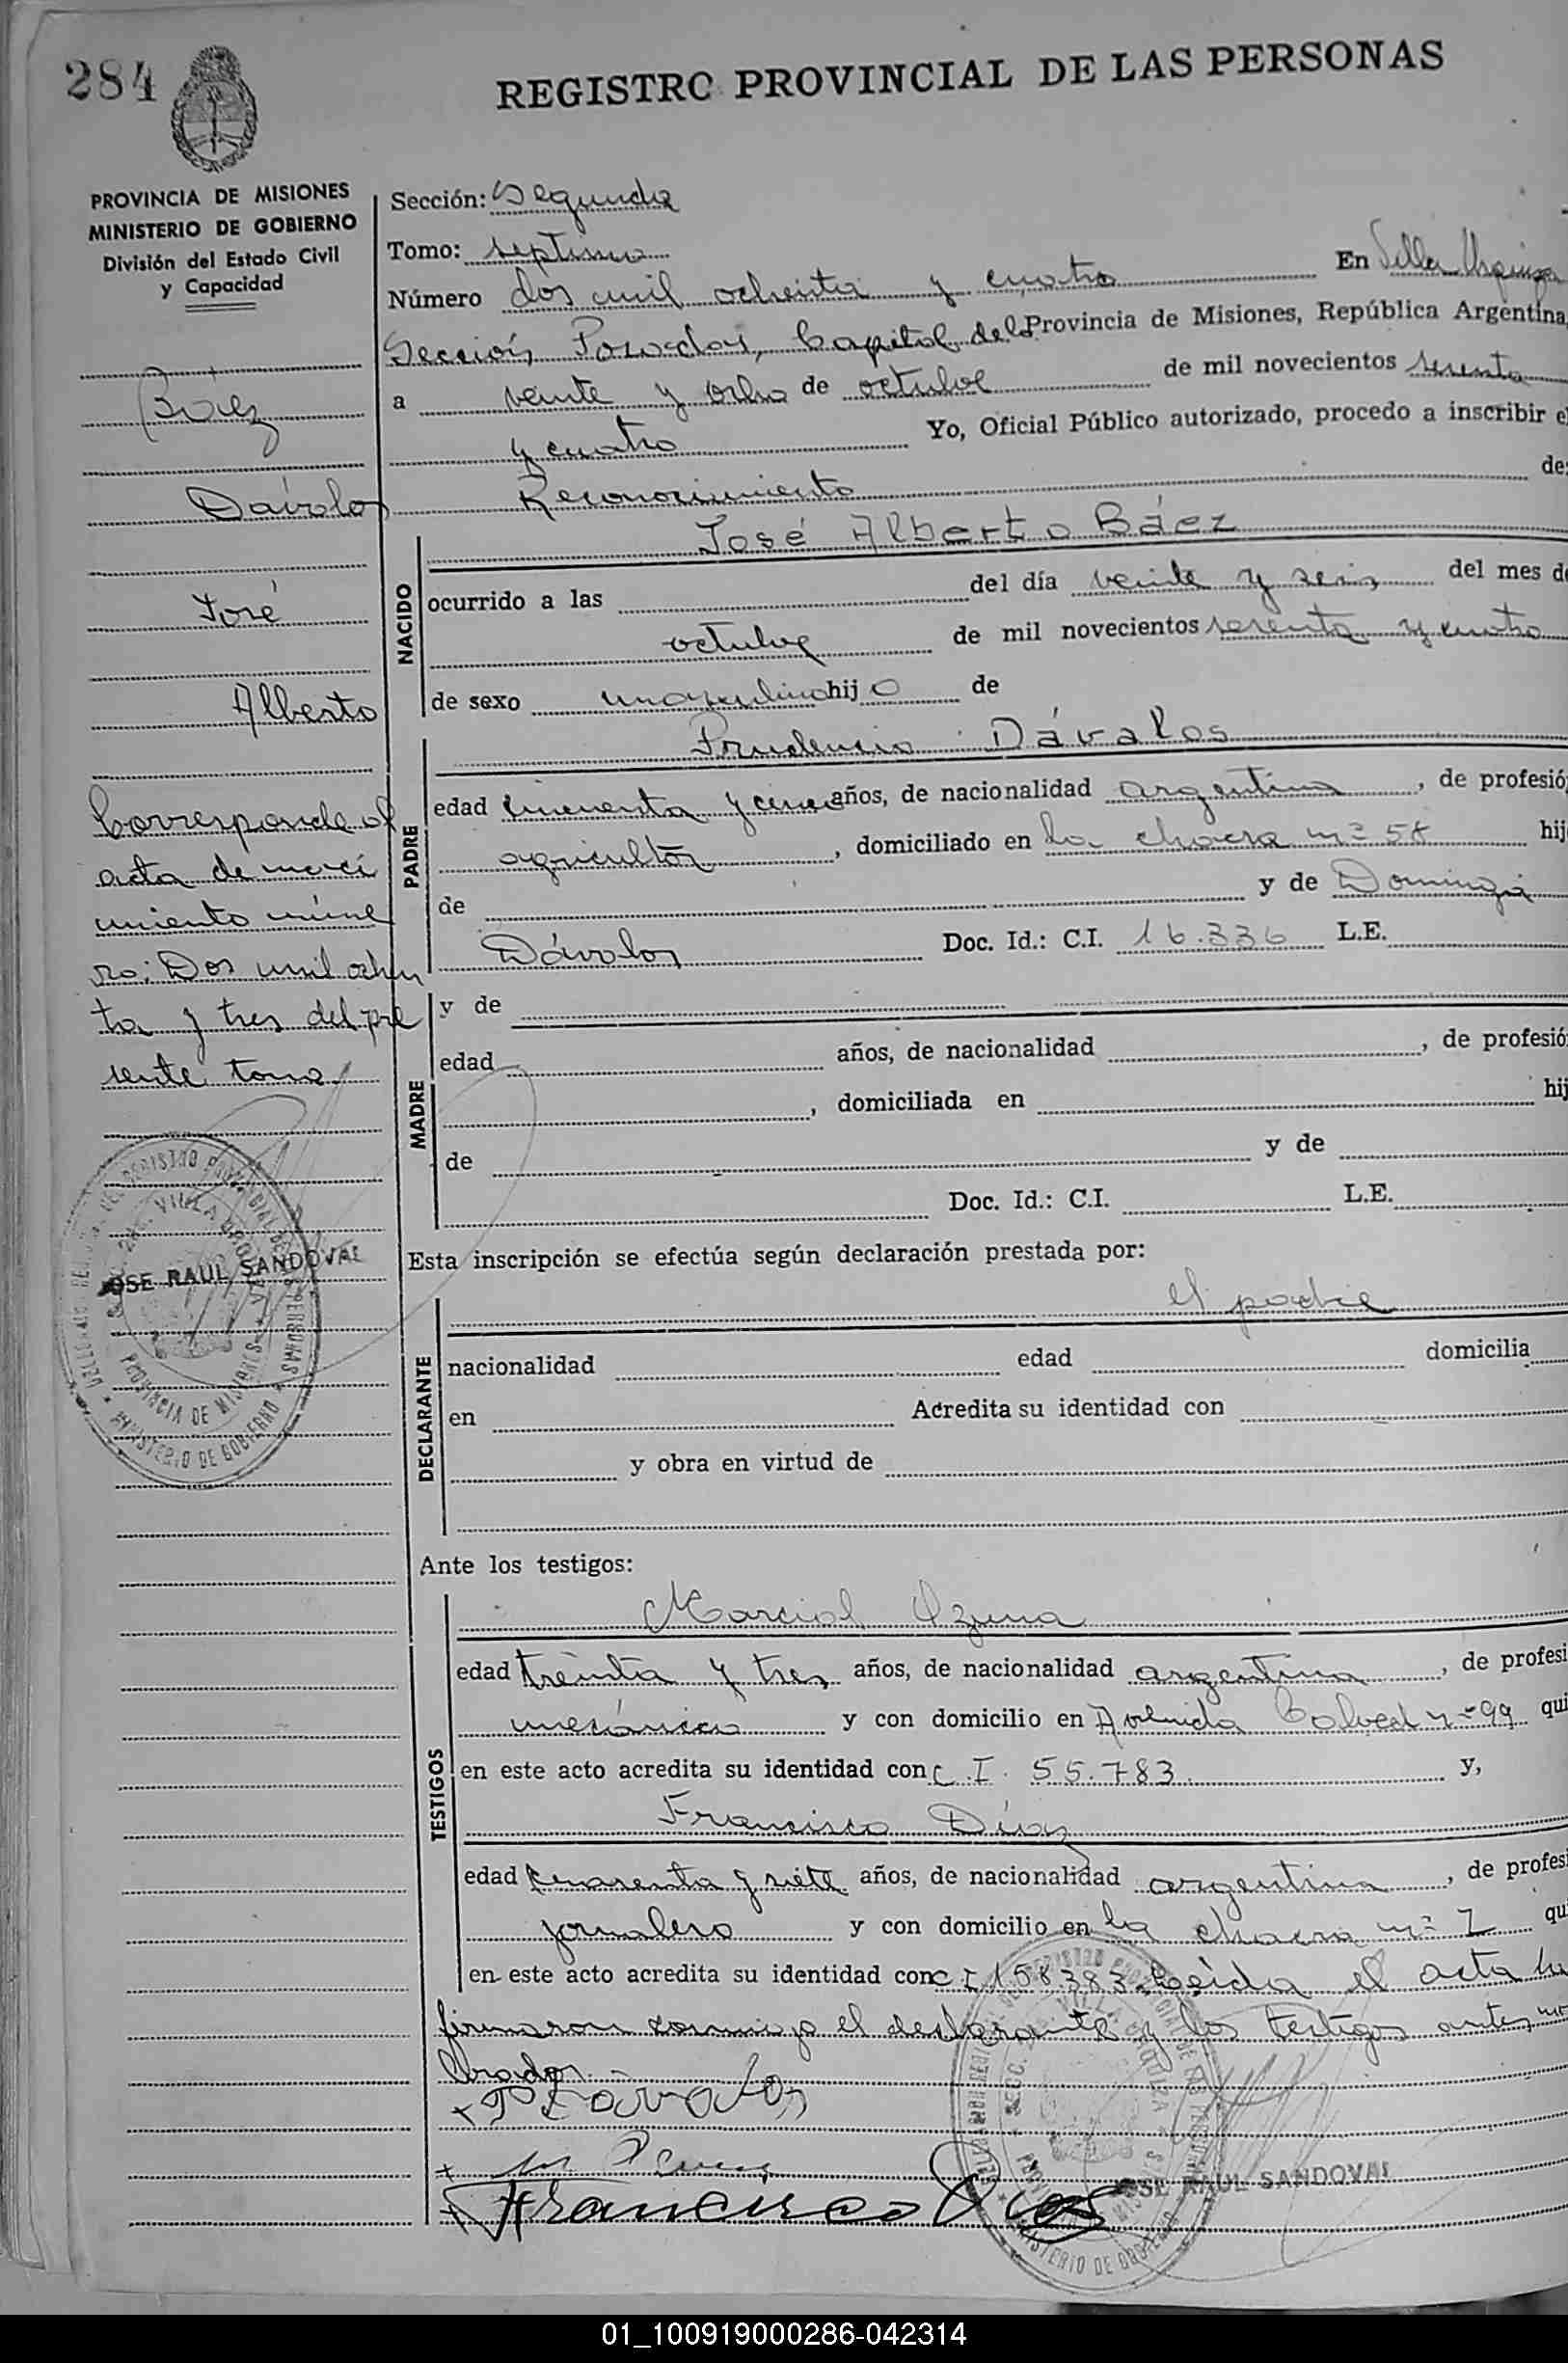 284
REGISTRO PROVINCIAL DE LAS PERSONAS
PROVINCIA DE MISIONES
MINISTERIO DE GOBIERNO
División del Estado Civil
y Capacidad
Báez
Dávalos
José
Alberto
Corresponde al
acta de naci
miento núme
ro: Dos mil ochen
ta y tres del pre
sente tomo.
JOSE RAUL SANDOVAL
Sección: Segunda
Tomo: septimo
Número dos mil ochenta y cuatro En Villa Urquiza
Sección, Posadas, Capital de la Provincia de Misiones, República Argentina,
a veinte y ocho de octubre de mil novecientos sesenta
y cuatro Yo, Oficial Público autorizado, procedo a inscribir e
Reconocimiento de:
NACIDO
José Alberto Báez
ocurrido a las del día veinte y seis del mes de
octubre de mil novecientos sesenta y cuatro
de sexo masculino hijo de
PADRE
Prudencio Dávalos
edad cincuenta y cinco años, de nacionalidad argentina, de profesió
agricultor, domiciliado en la chacra nº 58 hij
de y de Dominga
Dávalos Doc. Id.: C.I. 16.336 L.E.
MADRE
y de
edad años, de nacionalidad , de profesió
, domiciliada en hij
de y de
Doc. Id.: C.I. L.E.
Esta inscripción se efectúa según declaración prestada por:
DECLARANTE
el padre
nacionalidad edad domicilia
en Acredita su identidad con
y obra en virtud de
Ante los testigos:
TESTIGOS
Marcial Ozuna
edad treinta y tres años, de nacionalidad argentina, de profesi
mecánico y con domicilio en Avenida nº 99 qui
en este acto acredita su identidad con C.I. 55.783. y,
Francisco Díaz
edad cuarenta y siete años, de nacionalidad argentina, de profesi
jornalero y con domicilio en la chacra nº qu
en este acto acredita su identidad con C I 158.383. Leída el acta la
firmaron conmigo el declarante y los testigos antes nom
brados.-
+ P Dávalos
+
+ Francisco Dias
JOSE RAUL SANDOVAL
01_100919000286-042314